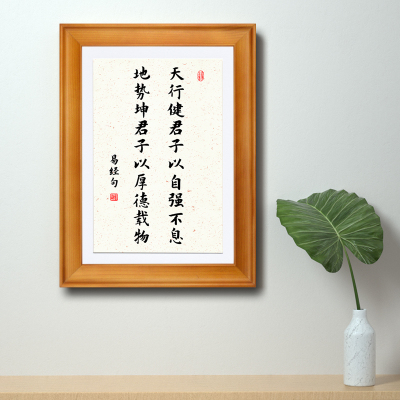 天行健君子以自强不息
地势坤君子以厚德载物
易经句